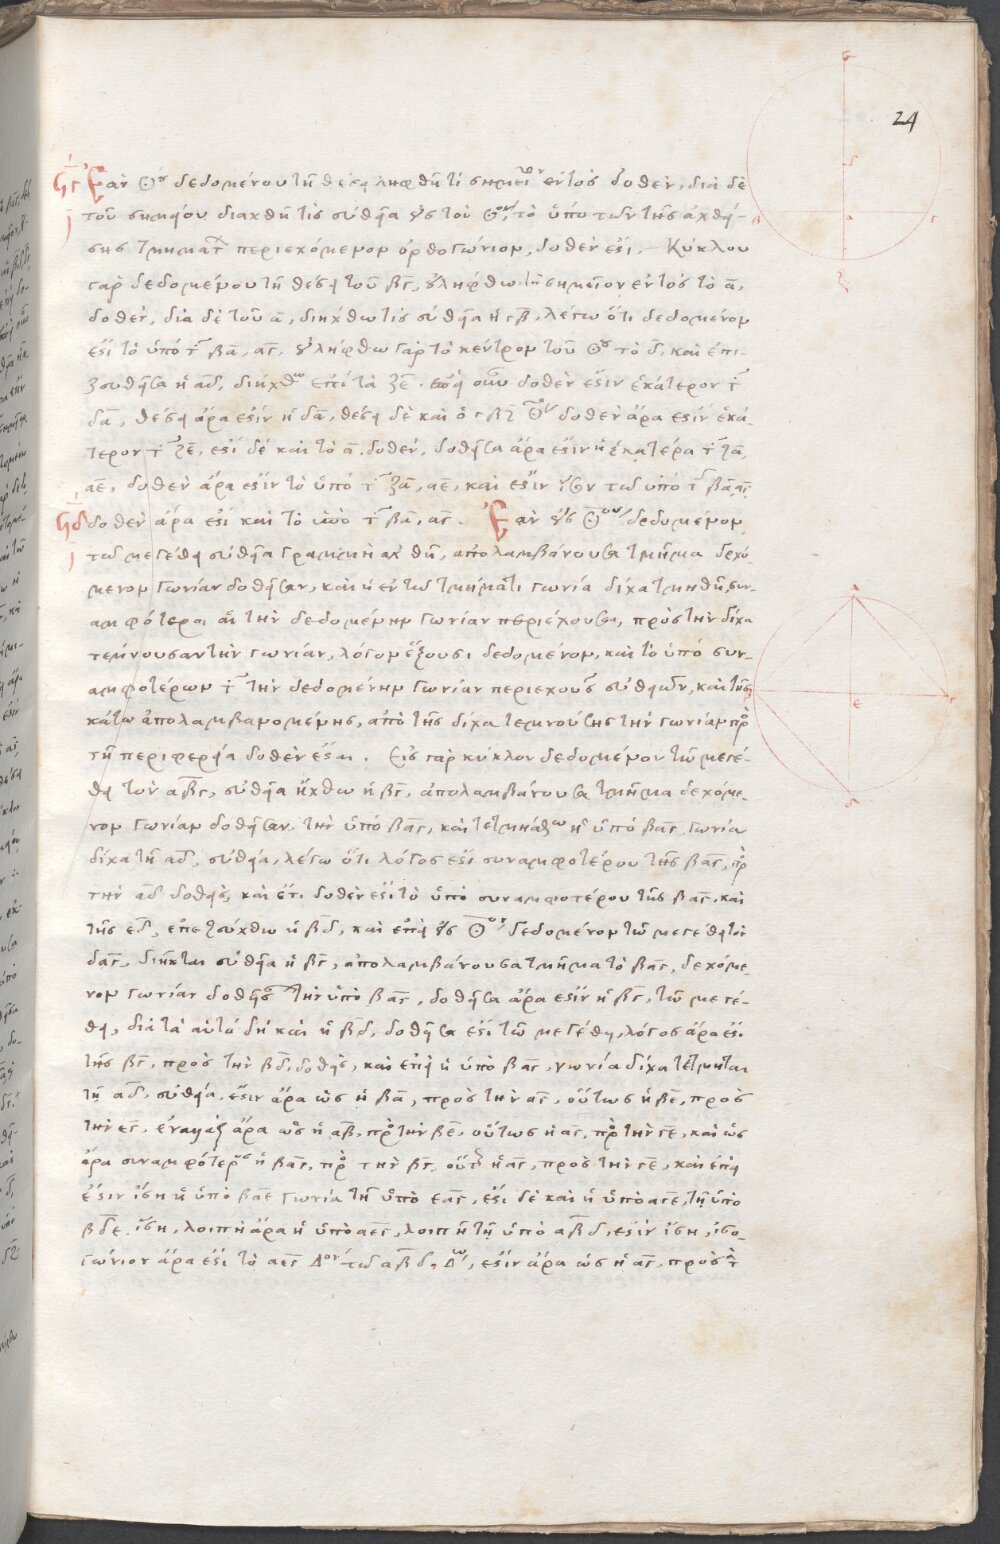 24
ϟγ Ἐὰν κύκλου δεδομένου τῆ θέσει ληφθῆ τί σημεῖον ἐντὸς δοθὲν, διὰ δὲ
τοῦ σημείου διαχθῆ τίς εὐθεῖα εἰς τὸν κύκλον, τὸ ὑπὸ τῶν τῆς ἀχθεί-
σης τμημάτων περιεχόμενον ὀρθογώνιον, δοθέν ἐστι. – Κύκλου
γὰρ δεδομένου τῆ θέσει τοῦ βγ, εἰλήφθω τι σημεῖον ἐντὸς τὸ α,
δοθὲν, διὰ δὲ τοῦ α, διήχθω τίς εὐθεῖα ἡ γβ, λέγω ὅτι δεδομένον
ἐστὶ τὸ ὑπὸ τῶν βα, αγ, εἰλήφθω γὰρ τὸ κέντρον τοῦ κύκλου τὸ δ, καὶ ἐπι-
ζευθεῖσα ἡ αδ, διήχθω ἐπὶ τὰ ζε. ἐπεὶ οὖν δοθέν ἐστιν ἑκάτερον τῶν
δα, θέσει ἄρα ἐστὶν ἡ δα, θέσει δὲ καὶ ὁ γβζ κύκλος δοθὲν ἄρα ἐστὶν ἑκά-
τερον τῶν ζε, ἐστὶ δὲ καὶ τὸ α, δοθέν, δοθεῖσα ἄρα ἐστὶν ἡ ἑκατέρα τῶν ζα,
αε, δοθὲν ἄρα ἐστὶν τὸ ὑπὸ τῶν ζα, αε, καὶ ἐστὶν ἴσον τῶ ὑπὸ τῶν βα, αγ,
ϟδ δοθὲν ἄρα ἐστὶ καὶ τὸ ὑπὸ τῶν βα, αγ. Ἐὰν εἰς κύκλον δεδομένον
τῶ μεγέθει εὐθεῖα γραμμὴ ἀχθῆ, ἀπολαμβάνουσα τμῆμα δεχό-
μενον γωνίαν δοθεῖσαν, καὶ ἡ ἐν τῶ τμήματι γωνία δίχα τμηθῆ, συν-
αμφότεραι αἱ τὴν δεδομένην γωνίαν περιέχουσαι, πρὸς τὴν δίχα
τέμνουσαν τὴν γωνίαν, λόγον ἕξουσι δεδομένον, καὶ τὸ ὑπὸ συν-
αμφοτέρων τῶν τὴν δεδομένην γωνίαν περιεχουσῶν εὐθειῶν, καὶ τῆς
κάτω ἀπολαμβανομένης, ἀπὸ τῆς δίχα τεμνούσης τὴν γωνίαν πρὸς
τῆ περιφερεία δοθὲν ἔσται. Εἰς γὰρ κύκλον δεδομένον τῶ μεγέ-
θει τὸν αβγ, εὐθεῖα ἤχθω ἡ βγ, ἀπολαμβάνουσα τμῆμα δεχόμε-
νον γωνίαν δοθεῖσαν. τὴν ὑπὸ βαγ, καὶ τετμήσθω ἡ ὑπὸ βαγ γωνία
δίχα τῆ αδ, εὐθεία, λέγω ὅτι λόγος ἐστὶ συναμφοτέρου τῆς βαγ, πρὸς
τὴν αδ δοθεὶς, καὶ ἔτι δοθέν ἐστι τὸ ὑπὸ συναμφοτέρου τῆς βαγ, καὶ
τῆς εδ, ἐπεζεύχθω ἡ βδ, καὶ ἐπεὶ εἰς κύκλον δεδομένον τῶ μεγέθει τὸν
δαγ, διῆκται εὐθεῖα ἡ βγ, ἀπολαμβάνουσα τμῆμα τὸ βαγ, δεχόμε-
νον γωνίαν δοθεῖσαν τὴν ὑπὸ βαγ, δοθεῖσα ἄρα ἐστὶν ἡ βγ, τῶ μεγέ-
θει, διὰ τὰ αὐτὰ δὴ καὶ ἡ βδ, δοθεῖσα ἐστὶ τῶ μεγέθει, λόγος ἄρα ἐστὶ
τῆς βγ, πρὸς τὴν βδ, δοθεὶς, καὶ ἐπεὶ ἡ ὑπὸ βαγ, γωνία δίχα τέτμηται
τῆ αδ, εὐθεία, ἔστιν ἄρα ὡς ἡ βα, πρὸς τὴν αγ, οὕτως ἡ βε, πρὸς
τὴν εγ, ἐναλλὰξ ἄρα ὡς ἡ αβ, πρὸς τὴν βε, οὕτως ἡ αγ, πρὸς τὴν γε, καὶ ὡς
ἄρα συναμφότερος ἡ βαγ, πρὸς τὴν βγ, οὕτως ἡ αγ, πρὸς τὴν γε, καὶ ἐπεὶ
ἐστὶν ἴση ἡ ὑπὸ βαε γωνία τῆ ὑπὸ εαγ, ἐστὶ δὲ καὶ ἡ ὑπὸ αγε, τῆ ὑπὸ
βδε. ἴση, λοιπὴ ἄρα ἡ ὑπὸ αεγ, λοιπῆ τῆ ὑπὸ αβδ, ἐστὶν ἴση, ἰσο-
γώνιον ἄρα ἐστὶ τὸ αεγ Δον τῶ αβδ, Δω, ἔστιν ἄρα ὡς ἡ αγ, πρὸς τὴν